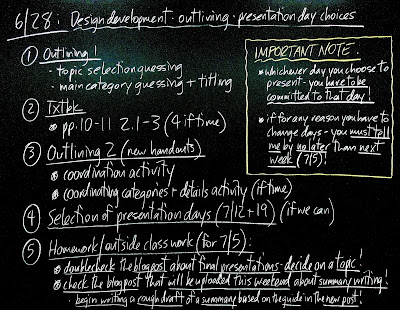 6/28: Design development · outlining · presentation day choices
① Outlining!
· topic selection guessing
· main category guessing + titling
② Txtbk
• pp. 10-11 2.1-3 (4 if time)
③ Outlining 2 (new handouts)
• coordination activity
• coordinating categories + details activity (if time)
④ Selection of presentation days (7/12 + 19) (if we can)
⑤ Homework/outside class work (for 7/5):
• doublecheck the blogpost about final presentations - decide on a topic!
• check the blogpost that will be uploaded this weekend about summary writing!
· begin writing a rough draft of a summary based on the guide in the new post!
IMPORTANT NOTE:
• whichever day you choose to
present - you have to be
committed to that day!
• if for any reason you have to
change days - you must tell
me by no later than next
week (7/5)!